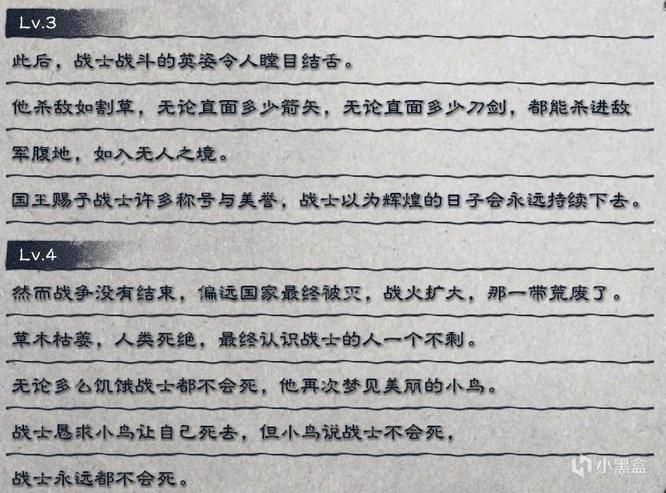 Lv.3
此后，战士战斗的英姿令人瞠目结舌。
他杀敌如割草，无论直面多少箭矢，无论直面多少刀剑，都能杀进敌
军腹地，如入无人之境。
国王赐予战士许多称号与美誉，战士以为辉煌的日子会永远持续下去。
Lv.4
然而战争没有结束，偏远国家最终被灭，战火扩大，那一带荒废了。
草木枯萎，人类死绝，最终认识战士的人一个不剩。
无论多么饥饿战士都不会死，他再次梦见美丽的小鸟。
战士恳求小鸟让自己死去，但小鸟说战士不会死，
战士永远都不会死。
小黑盒